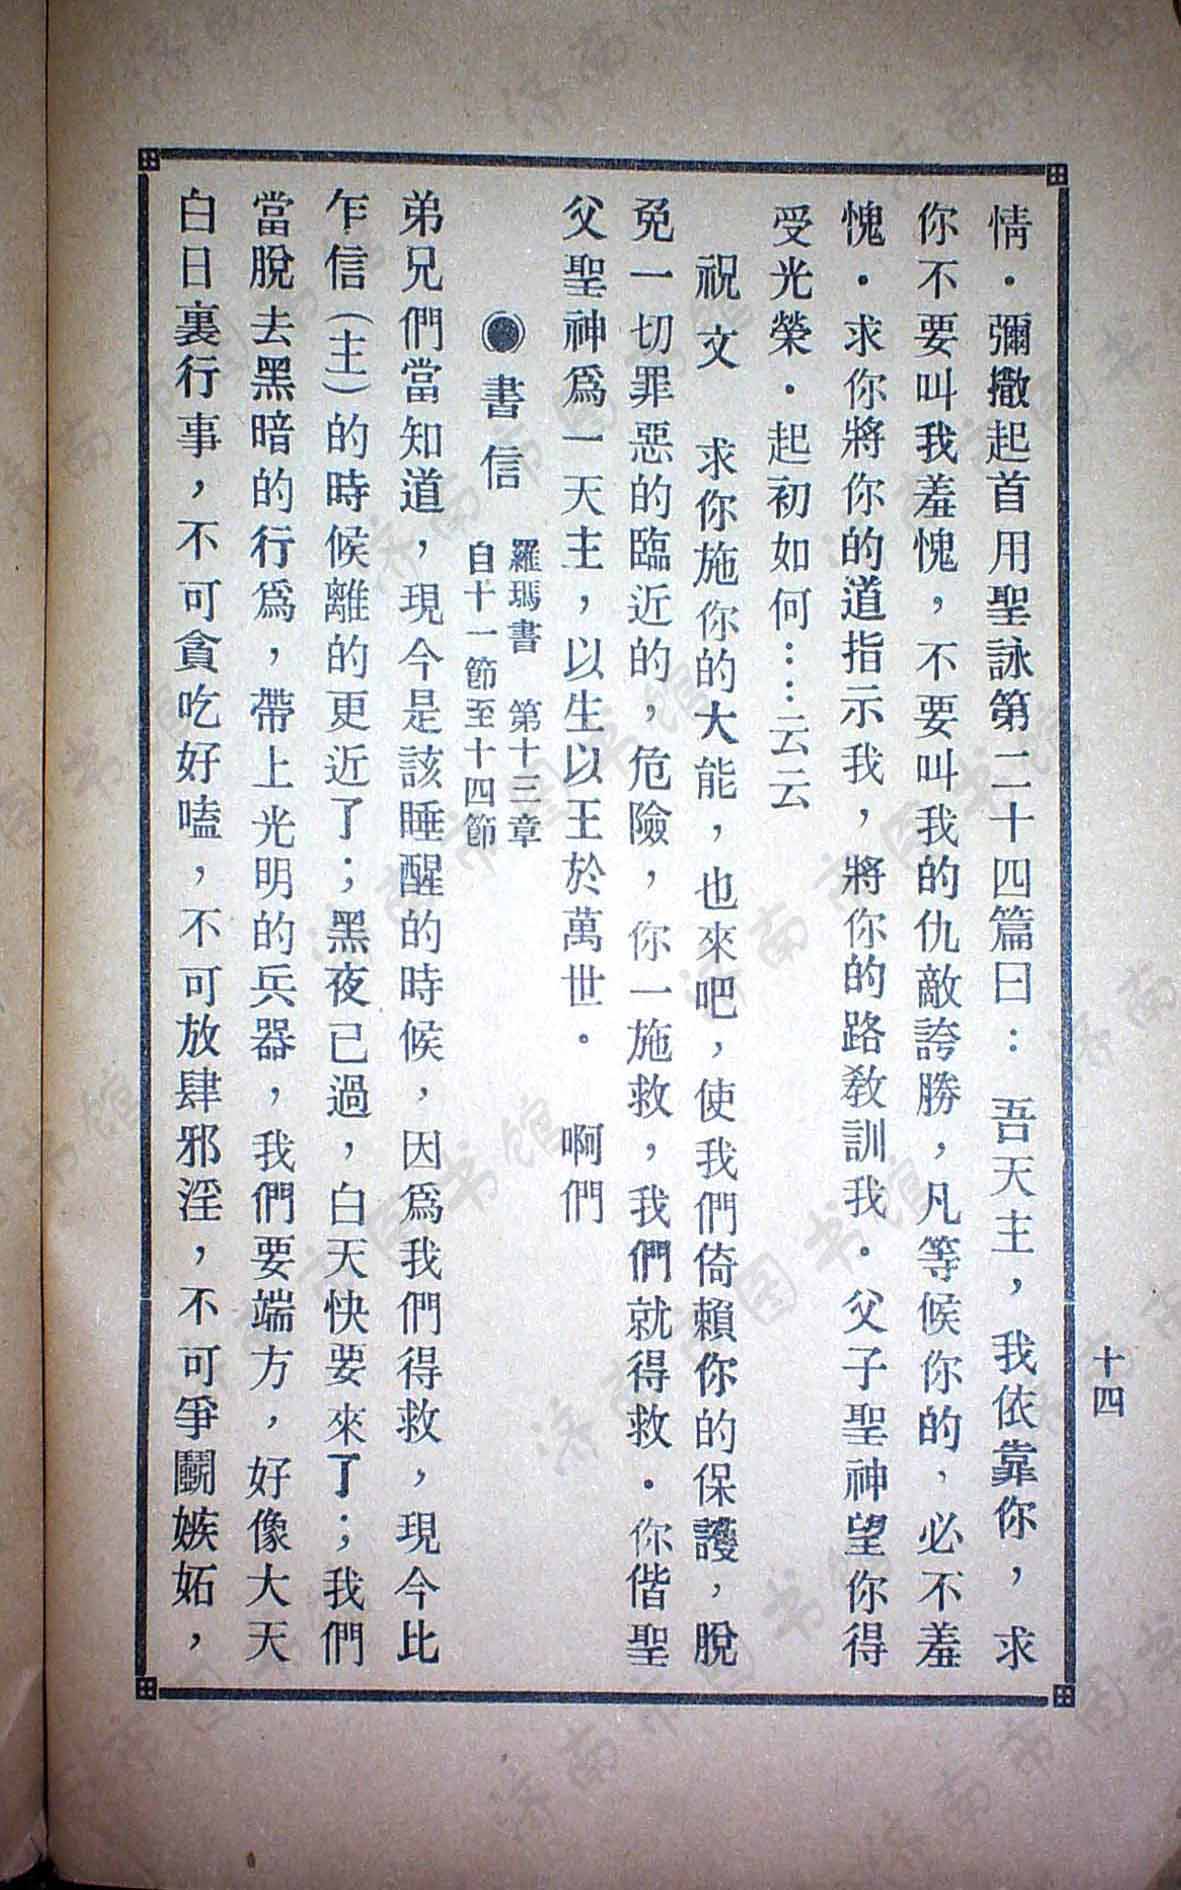 十四
情．彌撒起首用聖詠第二十四篇曰：吾天主，我依靠你，求
你不要叫我羞愧，不要叫我的仇敵誇勝，凡等候你的，必不羞
愧．求你將你的道指示我，將你的路敎訓我．父子聖神望你得
受光榮．起初如何……云云
祝文　求你施你的大能，也來吧，使我們倚賴你的保護，脫
免一切罪惡的臨近的，危險，你一施救，我們就得救．你偕聖
父聖神爲一天主，以生以王於萬世．　啊們
◉書信　羅瑪書　第十三章
自十一節至十四節
弟兄們當知道，現今是該睡醒的時候，因爲我們得救，現今比
乍信（主）的時候離的更近了；黑夜已過，白天快要來了；我們
當脫去黑暗的行爲，帶上光明的兵器，我們要端方，好像大天
白日裏行事，不可貪吃好嗑，不可放肆邪淫，不可爭鬬嫉妬，
济南市图书馆